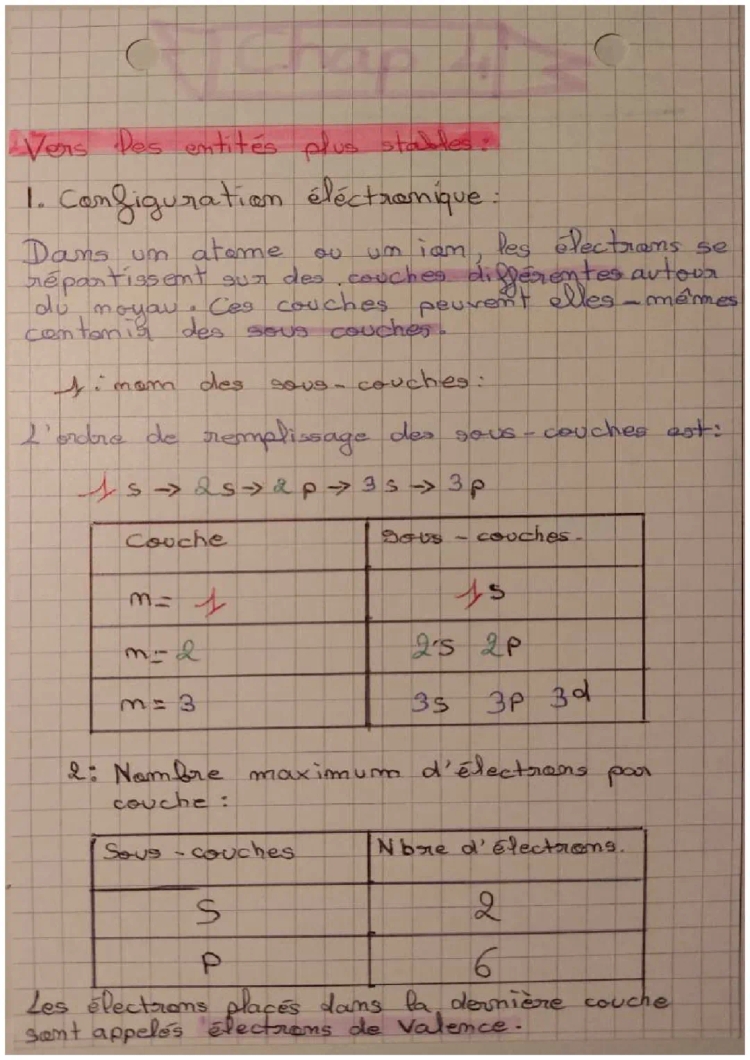 Chap 4
Vers Des entités plus stables :
1. Configuration éléctronique :
Dans un atome ou un ion, les électrons se
répartissent sur des couches différentes autour
du noyau. Ces couches peuvent elles-mêmes
contenir des sous couches.
1 : nom des sous-couches :
L'ordre de remplissage des sous-couches est :
1s → 2s → 2p → 3s → 3p
Couche Sous-couches.
n= 1 1s
n=2 2s 2p
n=3 3s 3p 3d
2: Nombre maximum d'électrons par
couche :
Sous-couches Nbre d'électrons.
S 2
P 6
Les électrons placés dans la dernière couche
sont appelés électrons de valence.